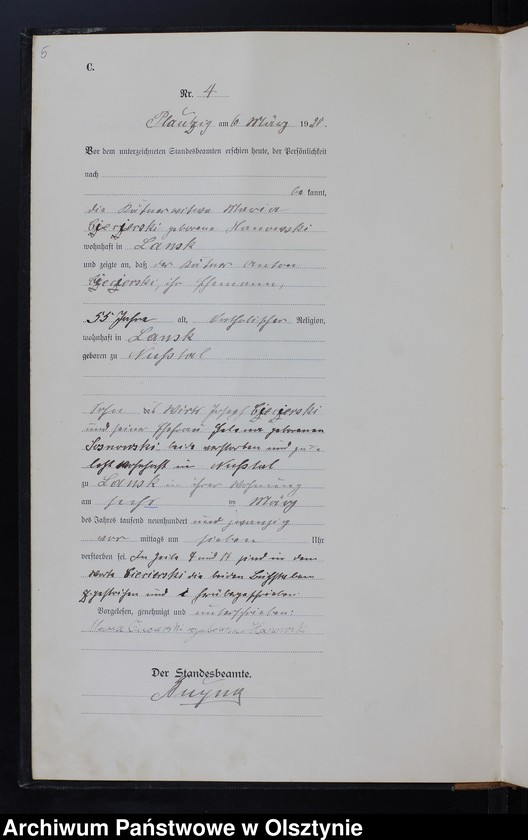 5
C.
Nr. 4
Plautzig am 6 März 1920.
Vor dem unterzeichneten Standesbeamten erschien heute, der Persönlichkeit
nach
be kannt,
die Kätnerwitwe Maria
Ciecierski geborene Kanowski
wohnhaft in Lansk
und zeigte an, daß der Kätner Anton
Ciecierski, ihr Ehemann,
55 Jahre alt, katholischer Religion,
wohnhaft in Lansk
geboren zu Nußtal
Sohn des Wirts Josef Ciecierski
und seiner Ehefrau Helena geborenen
Sosnowski beide verstorben und zu
letzt wohnhaft in Nußtal
zu Lansk in ihrer Wohnung
am sechs ten März
des Jahres tausend neunhundert und zwanzig
vor mittags um sieben Uhr
verstorben sei. In Zeile und sind in dem
Worte Ciecierski die beiden Buchstaben
gestrichen und i herübergeschrieben
Vorgelesen, genehmigt und unterschrieben:
Maria geborene Kanowski
Der Standesbeamte.